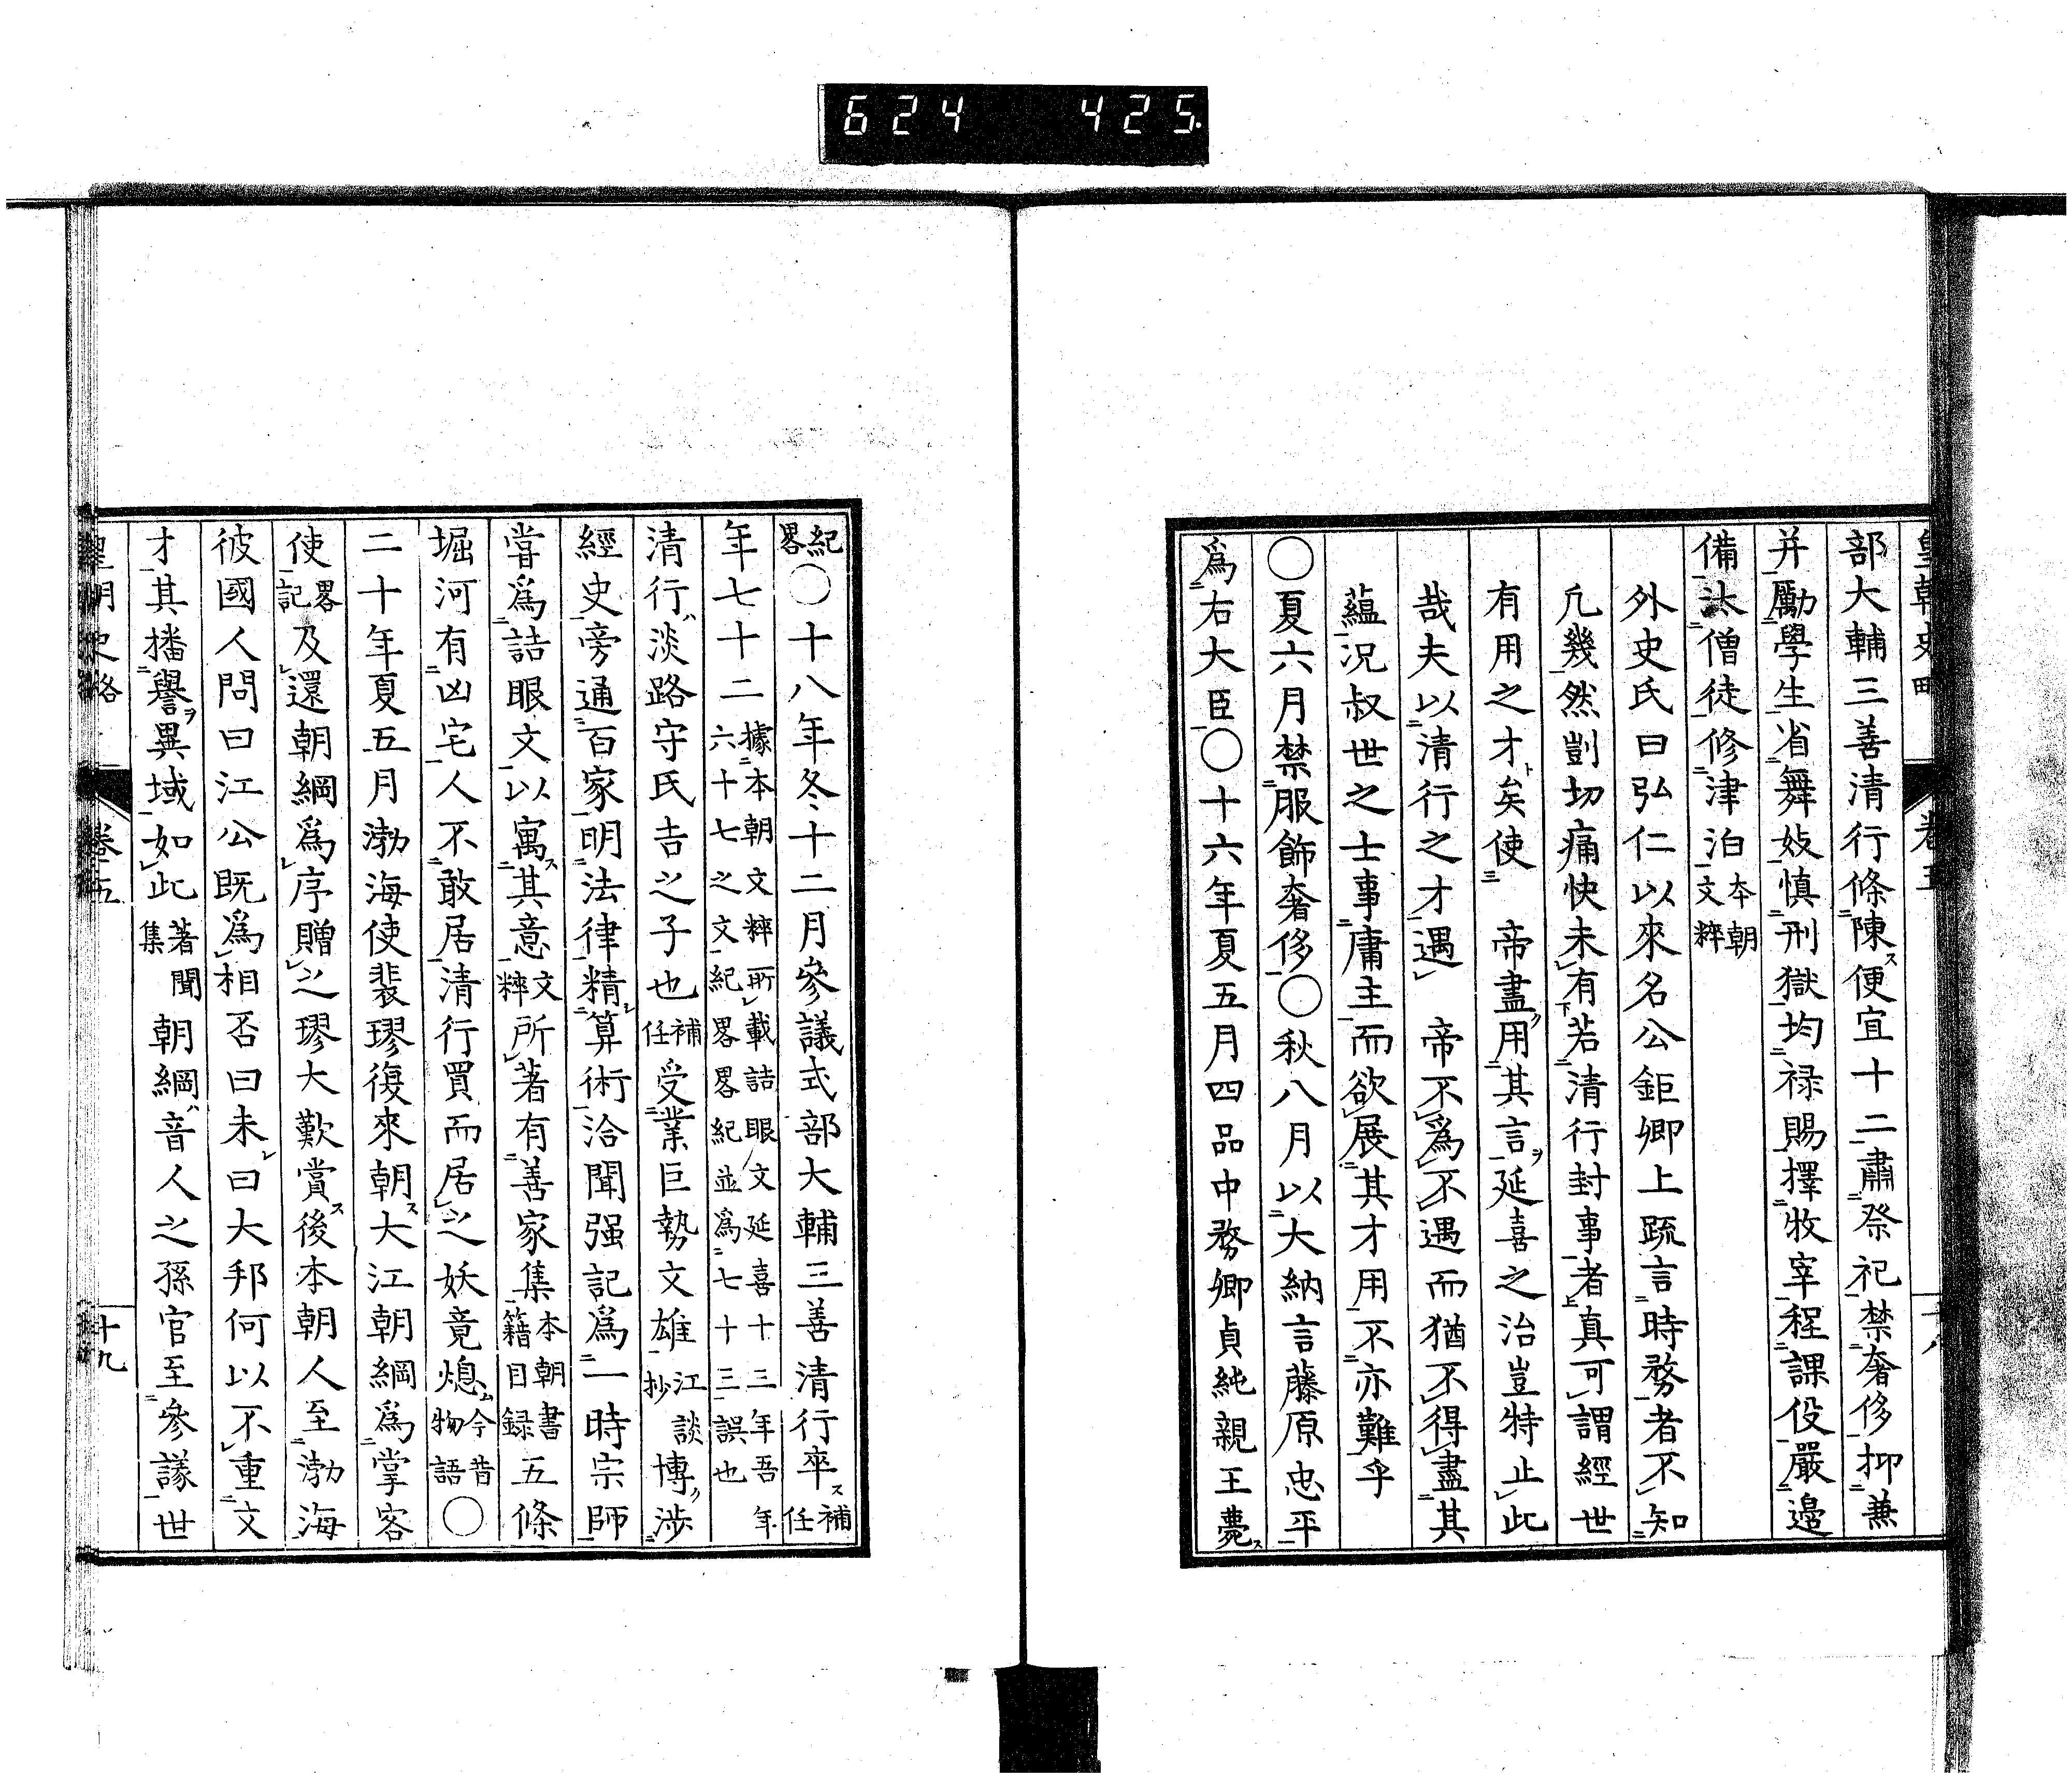 624 425.
皇朝史略 卷五 十八
部大輔三善清行條陳ス便宜十二肅祭祀禁奢侈抑兼
并勵學生省舞妓慎刑獄均禄賜擇牧宰程課役嚴邉
備汰僧徒修津泊本朝文粹
外史氏曰弘仁以來名公鉅卿上疏言時務者不知
凢幾然剴切痛快未有若清行封事者真可謂經世
有用之才矣使 帝盡用其言延喜之治豈特止此
哉夫以清行之才遇 帝不爲不遇而猶不得盡其
蘊况叔世之士事庸主而欲展其才用不亦難乎
〇夏六月禁服飾奢侈〇秋八月以大納言藤原忠平
爲右大臣〇十六年夏五月四品中務卿貞純親王薨ス
紀畧〇十八年冬十二月參議式部大輔三善清行卒ス補任
年七十二據本朝文粹所載詰眼文延喜十三年吾年六十七之文紀畧畧紀並爲七十三誤也
清行淡路守氏吉之子也補任受業巨勢文雄江談抄博涉
經史旁通百家明法律精算術洽聞强記爲一時宗師
嘗爲詰眼文以寓其意文粹所著有善家集本朝書籍目録五條
堀河有凶宅人不敢居清行買而居之妖竟熄今昔物語〇
二十年夏五月渤海使裴璆復來朝ス大江朝綱爲掌客
使畧記及還朝綱爲序贈之璆大歎賞ス後本朝人至渤海
彼國人問曰江公既爲相否曰未曰大邦何以不重文
才其播譽異域如此著聞集朝綱音人之孫官至參議世
皇朝史略 卷五 十九